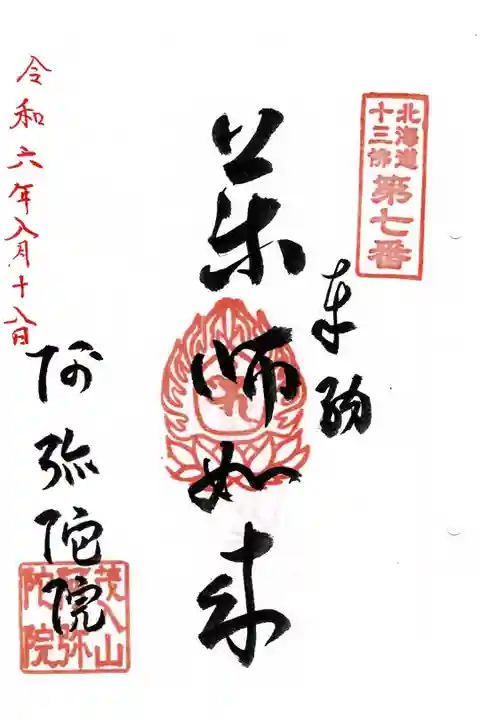 北海道
十三佛
第七番
奉拝
薬師如来
令和六年八月十八日
阿弥陀院
茂入山
阿弥
陀院